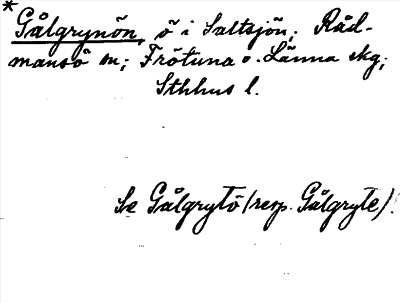 * Gålgrynön, ö i Saltsjön; Råd-
mansö sn; Frötuna o. Länna skg;
Sthhus l.
Se Gålgrytö (resp. Gålgryte).